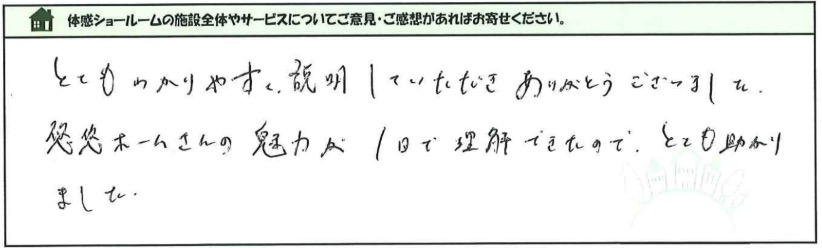 体感ショールームの施設全体やサービスについてご意見・ご感想があればお寄せください。
とてもわかりやすく、説明していただきありがとうございました。
悠悠ホームさんの魅力が1日で理解できたので、とても助かり
ました。